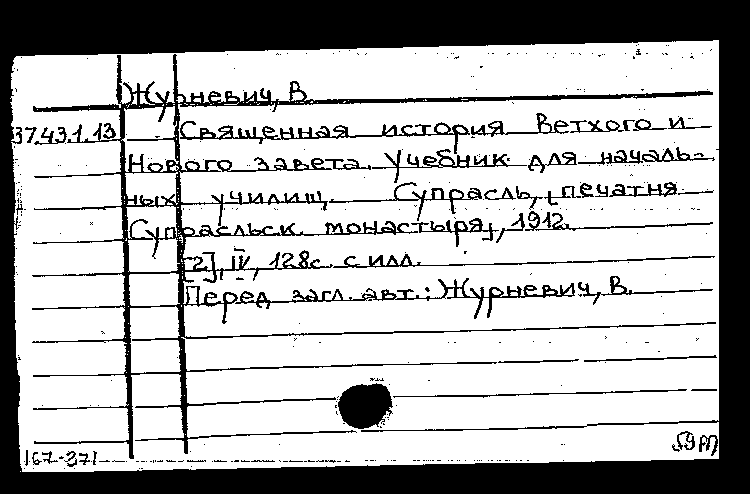 Журневич, В.
37.43.1.13 Священная история Ветхого и
Нового завета. Учебник для началь-
ных училищ. Супрасль, [печатня
Супрасльск. монастыря], 1912.
[2], IV, 128с. с илл.
Перед загл. авт.: Журневич, В.
167-371